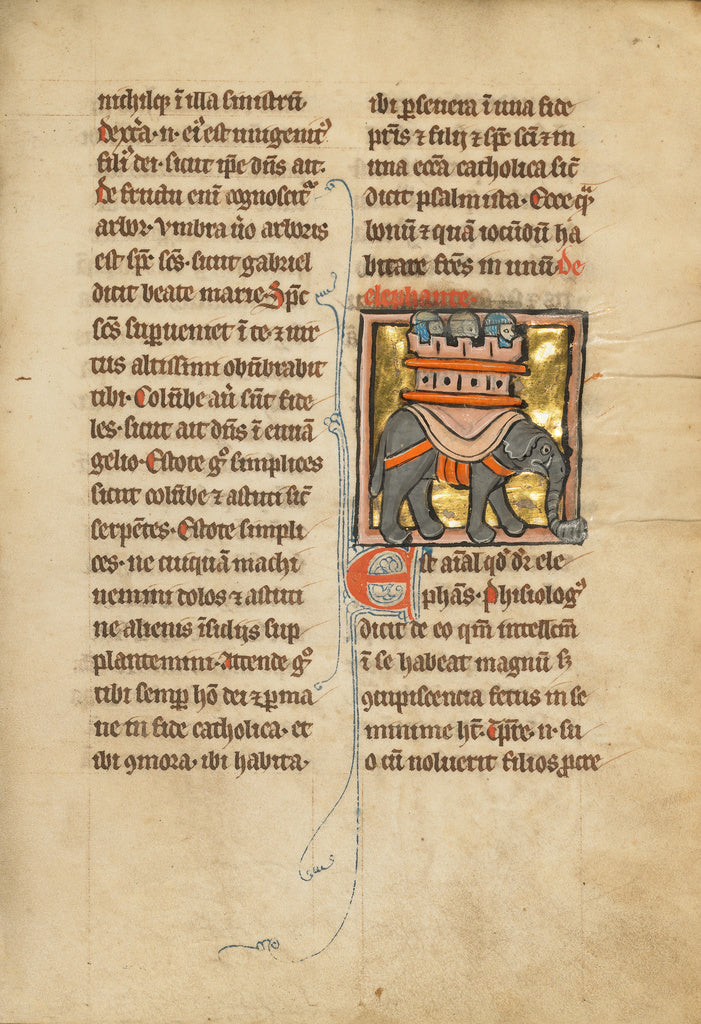 nichilq̃ ĩ illa sinistrũ·
dext̃a·n·ei᷒ est unigenit᷒
fili᷒ dei· sicut ip̃e dñs ait·
De fructu eni᷒ cognoscit᷑
arbor· Vmbra ũo arboris
est sp̃c sc̃s· sicut gabriel
dicit beate marie· Sp̃c
sc̃s superueniet ĩ te ⁊ uir
tus altissimi obũbrabit
tibi· Colũbe aũ sũt fide
les· sicut ait dñs ĩ euuã
gelio· Estote g̊ simplices
sicut colũbe ⁊ astuti sic̃
serpẽtes· Estote simpli
ces· ne cuiquã machi
nemini dolos ⁊ astuti
ne alienis ĩsidijs sup
plantemini· Attende g̊
tibi semꝑ hõ dei ⁊ ꝑma
ne in fide catholica· et
ibi ꝯmora· ibi habita·
ibi ꝑseuera ĩ una fide
pr̃is ⁊ filij ⁊ sp̃c sc̃i ⁊ in
una ecc̃a catholica sic̃
dicit psalmista· Ecce q̃
bonũ ⁊ quã iocũdũ ha
bitare fr̃es in unũ· De
elephante·
Est aĩal qd̃ dr̃ ele
phãs· Phisiolog᷒
dicit de eo qm̃ intellc̃m
ĩ se habeat magnũ sꝫ
ꝯcupiscencia fetus in se
minime ht̃· T̃pr̃e·n·su
o cũ uoluerit filios ꝓcre